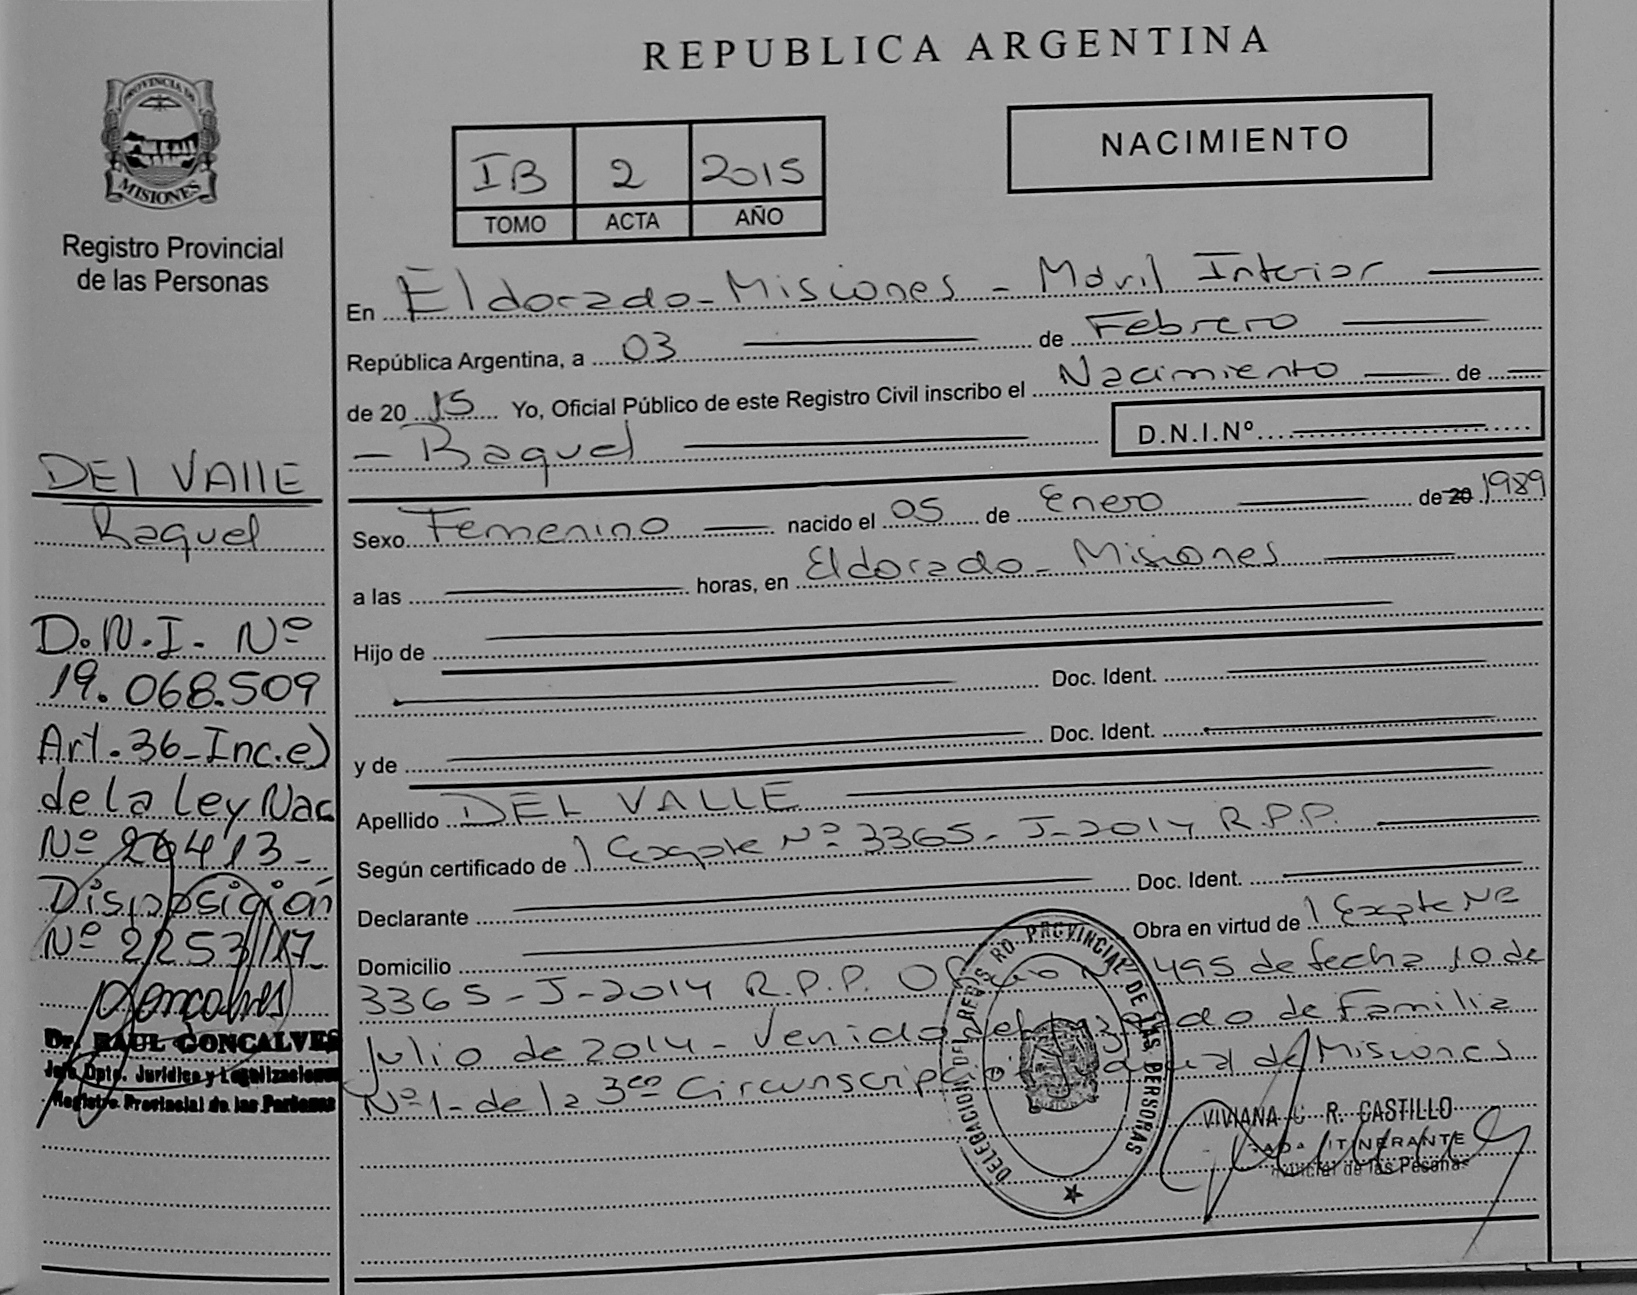 PROVINCIA DE
MISIONES
Registro Provincial
de las Personas
DEL VALLE
Raquel
D.N.I. Nº
19.068.509
Art. 36 - Inc. e)
de la Ley Nac
Nº 26413 -
Disposición
Nº 2253/17
Dr. RAUL GONCALVES
Jefe Dpto. Jurídica y Legalizaciones
Registro Provincial de las Personas
REPUBLICA ARGENTINA
IB 2 2015
TOMO ACTA AÑO
NACIMIENTO
En Eldorado - Misiones - Móvil Interior
República Argentina, a 03 de Febrero
de 20 15 Yo, Oficial Público de este Registro Civil inscribo el Nacimiento de
- Raquel D.N.I.Nº
Sexo Femenino nacido el 05 de Enero de 20 1989
a las horas, en Eldorado - Misiones
Hijo de
Doc. Ident.
y de Doc. Ident.
Apellido DEL VALLE
Según certificado de / Expte Nº 3365 - J - 2014 R.P.P.
Declarante Doc. Ident.
Domicilio Obra en virtud de / Expte Nº
3365 - J - 2014 R.P.P. Oficio Nº 495 de fecha 10 de
Julio de 2014 - Venido del Juzgado de Familia
Nº 1 - de la 3era Circunscripción Judicial de Misiones
DELEGACION DEL REGISTRO PROVINCIAL DE LAS PERSONAS
VIVIANA R. CASTILLO
ITINERANTE
de las Personas